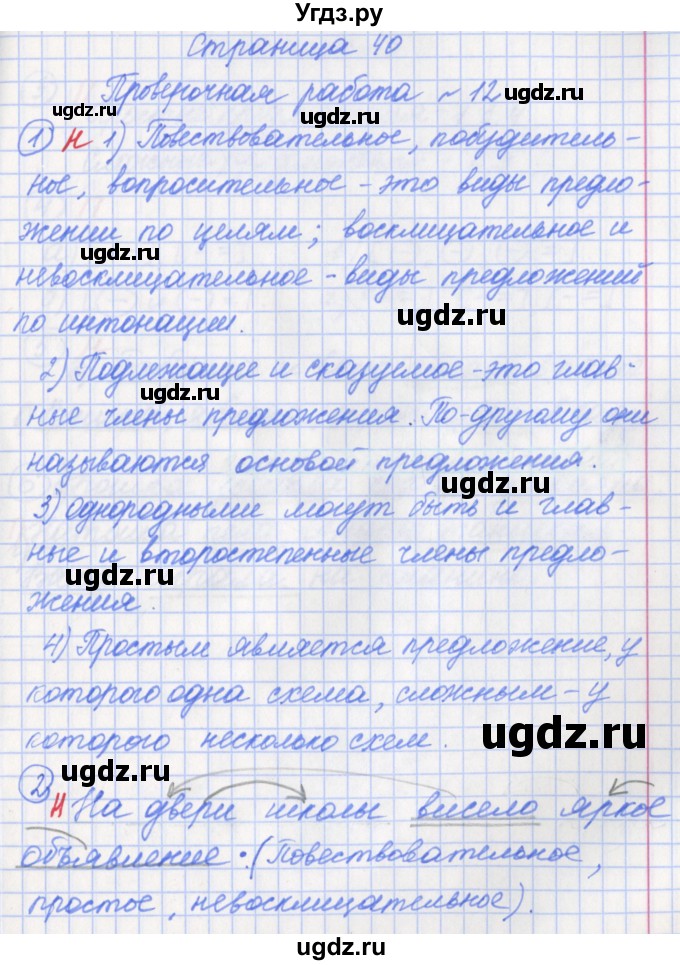 Угдз.ру
Страница 40
Проверочная работа ~ 12
ugdz.ru
ugdz.ru
1 Н 1) Повествовательное, побудитель-
ное, вопросительное - это виды предло-
жении по целям; восклицательное и
ugdz.ru
невосклицательное - виды предложений
по интонации.
ugdz.ru
2) Подлежащее и сказуемое - это глав-
ugdz.ru
ные члены предложения. По-другому они
называются основой предложения.
3) однородными могут быть и глав-
ные и второстепенные члены предло-
ugdz.ru
жения.
4) Простым является предложение, у
которого одна схема, сложным - у
которого несколько схем.
ugdz.ru
2 Н На двери школы висело яркое
объявление. (Повествовательное,
простое, невосклицательное).
ugdz.ru